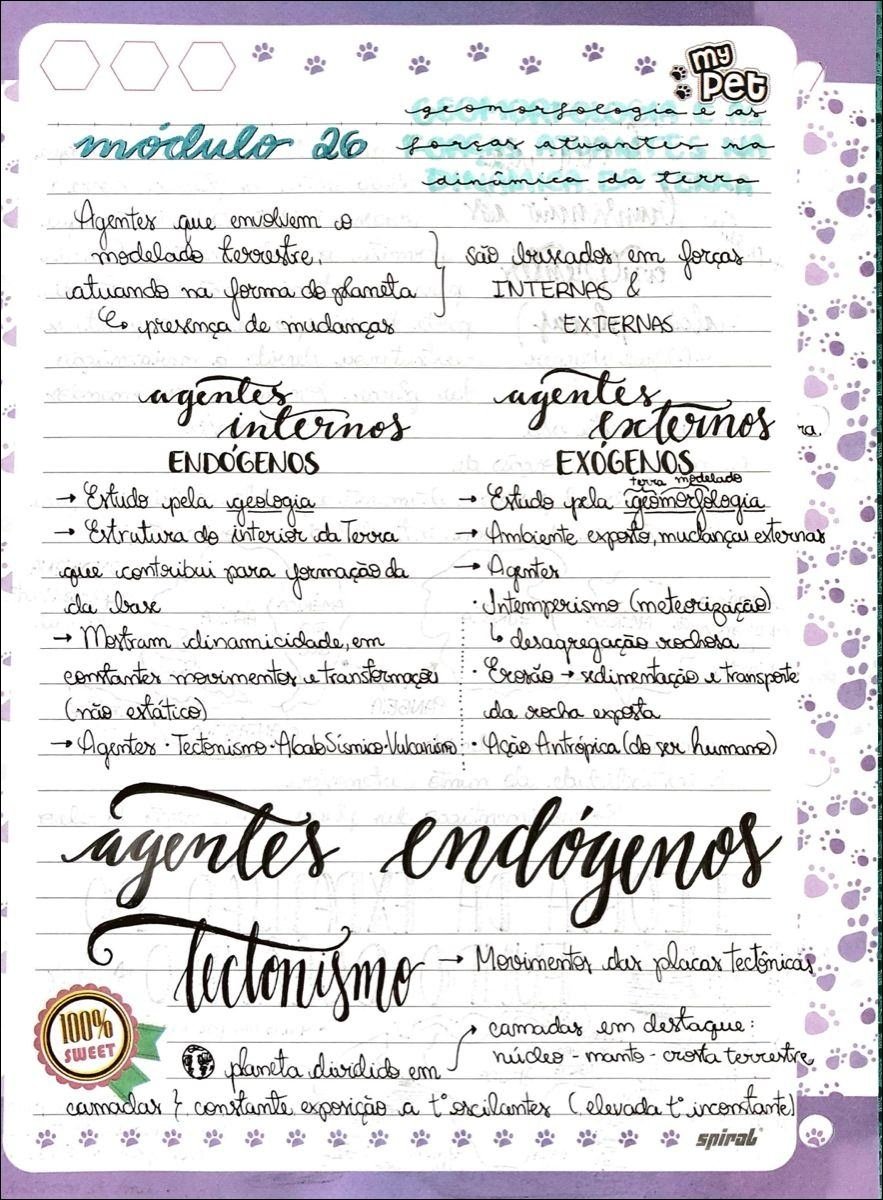 my
Pet
geomorfologia e as
módulo 26 forças atuantes na
dinâmica da terra
Agentes que envolvem o
modelado terrestre, são buscados em forças
atuando na forma do planeta INTERNAS &
presença de mudanças EXTERNAS
agentes agentes
internos externos
ENDÓGENOS EXÓGENOS
terra modelado
→ Estudo pela geologia → Estudo pela geomorfologia
→ Estrutura do interior da Terra → Ambiente exposto, mudanças externas
que contribui para formação da → Agentes
da base · Intemperismo (meteorização)
→ Mostram dinamicidade, em ↳ desagregação rochosa
constantes movimentos e transformações · Erosão → sedimentação e transporte
(não estático) da rocha exposta
→ Agentes · Tectonismo · Abalo Sísmico · Vulcanismo · Ação Antrópica (do ser humano)
agentes endógenos
tectonismo → Movimentos das placas tectônicas
→ camadas em destaque:
100%
SWEET
núcleo - manto - crosta terrestre
planeta dividido em
camadas } constante exposição a t° oscilantes (elevada t° inconstante)
spiral